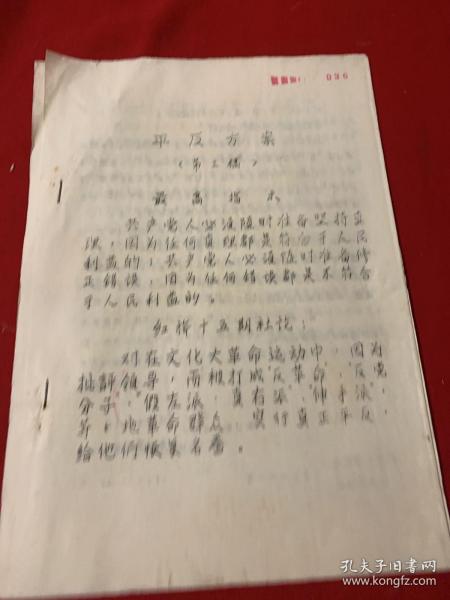 036
平反方案
（第三稿）
最高指示
共产党人必须随时准备坚持真
理，因为任何真理都是符合于人民
利益的；共产党人必须随时准备修
正错误，因为任何错误都是不符合
于人民利益的。
红旗十五期社论：
对在文化大革命运动中，因为
批评领导，而被打成“反革命”“反党
分子”“假左派，真右派”“伸手派”，
等 地革命群众 实行真正平反，
给他们恢复名誉。
孔夫子旧书网
www.kongfz.com